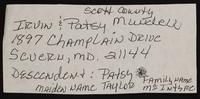 Scott County
Irvin & Patsy Murdell
1897 Champlain Drive
Severn, MD. 21144
Descendent: Patsy Family Name
Maiden Name Taylor McIntyre